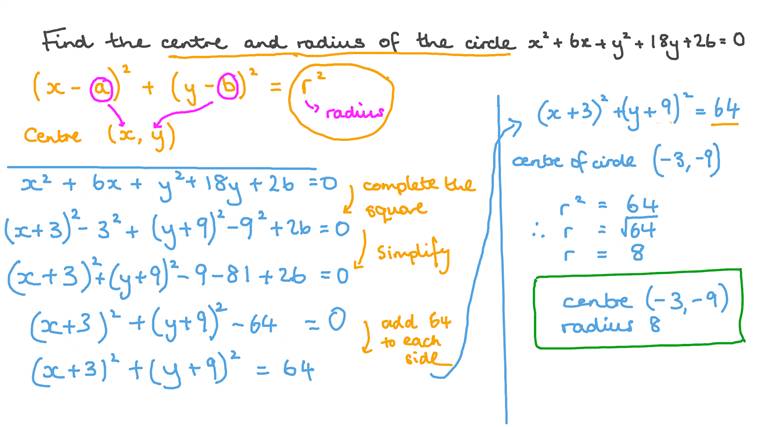 Find the centre and radius of the circle x² + 6x + y² + 18y + 26 = 0
(x - a)² + (y - b)² = r²
radius
Centre (x, y)
x² + 6x + y² + 18y + 26 = 0
complete the
square
(x+3)² - 3² + (y+9)² - 9² + 26 = 0
simplify
(x+3)² + (y+9)² - 9 - 81 + 26 = 0
(x+3)² + (y+9)² - 64 = 0
add 64
to each
side
(x+3)² + (y+9)² = 64
(x+3)² + (y+9)² = 64
centre of circle (-3, -9)
r² = 64
∴ r = √64
r = 8
centre (-3, -9)
radius 8